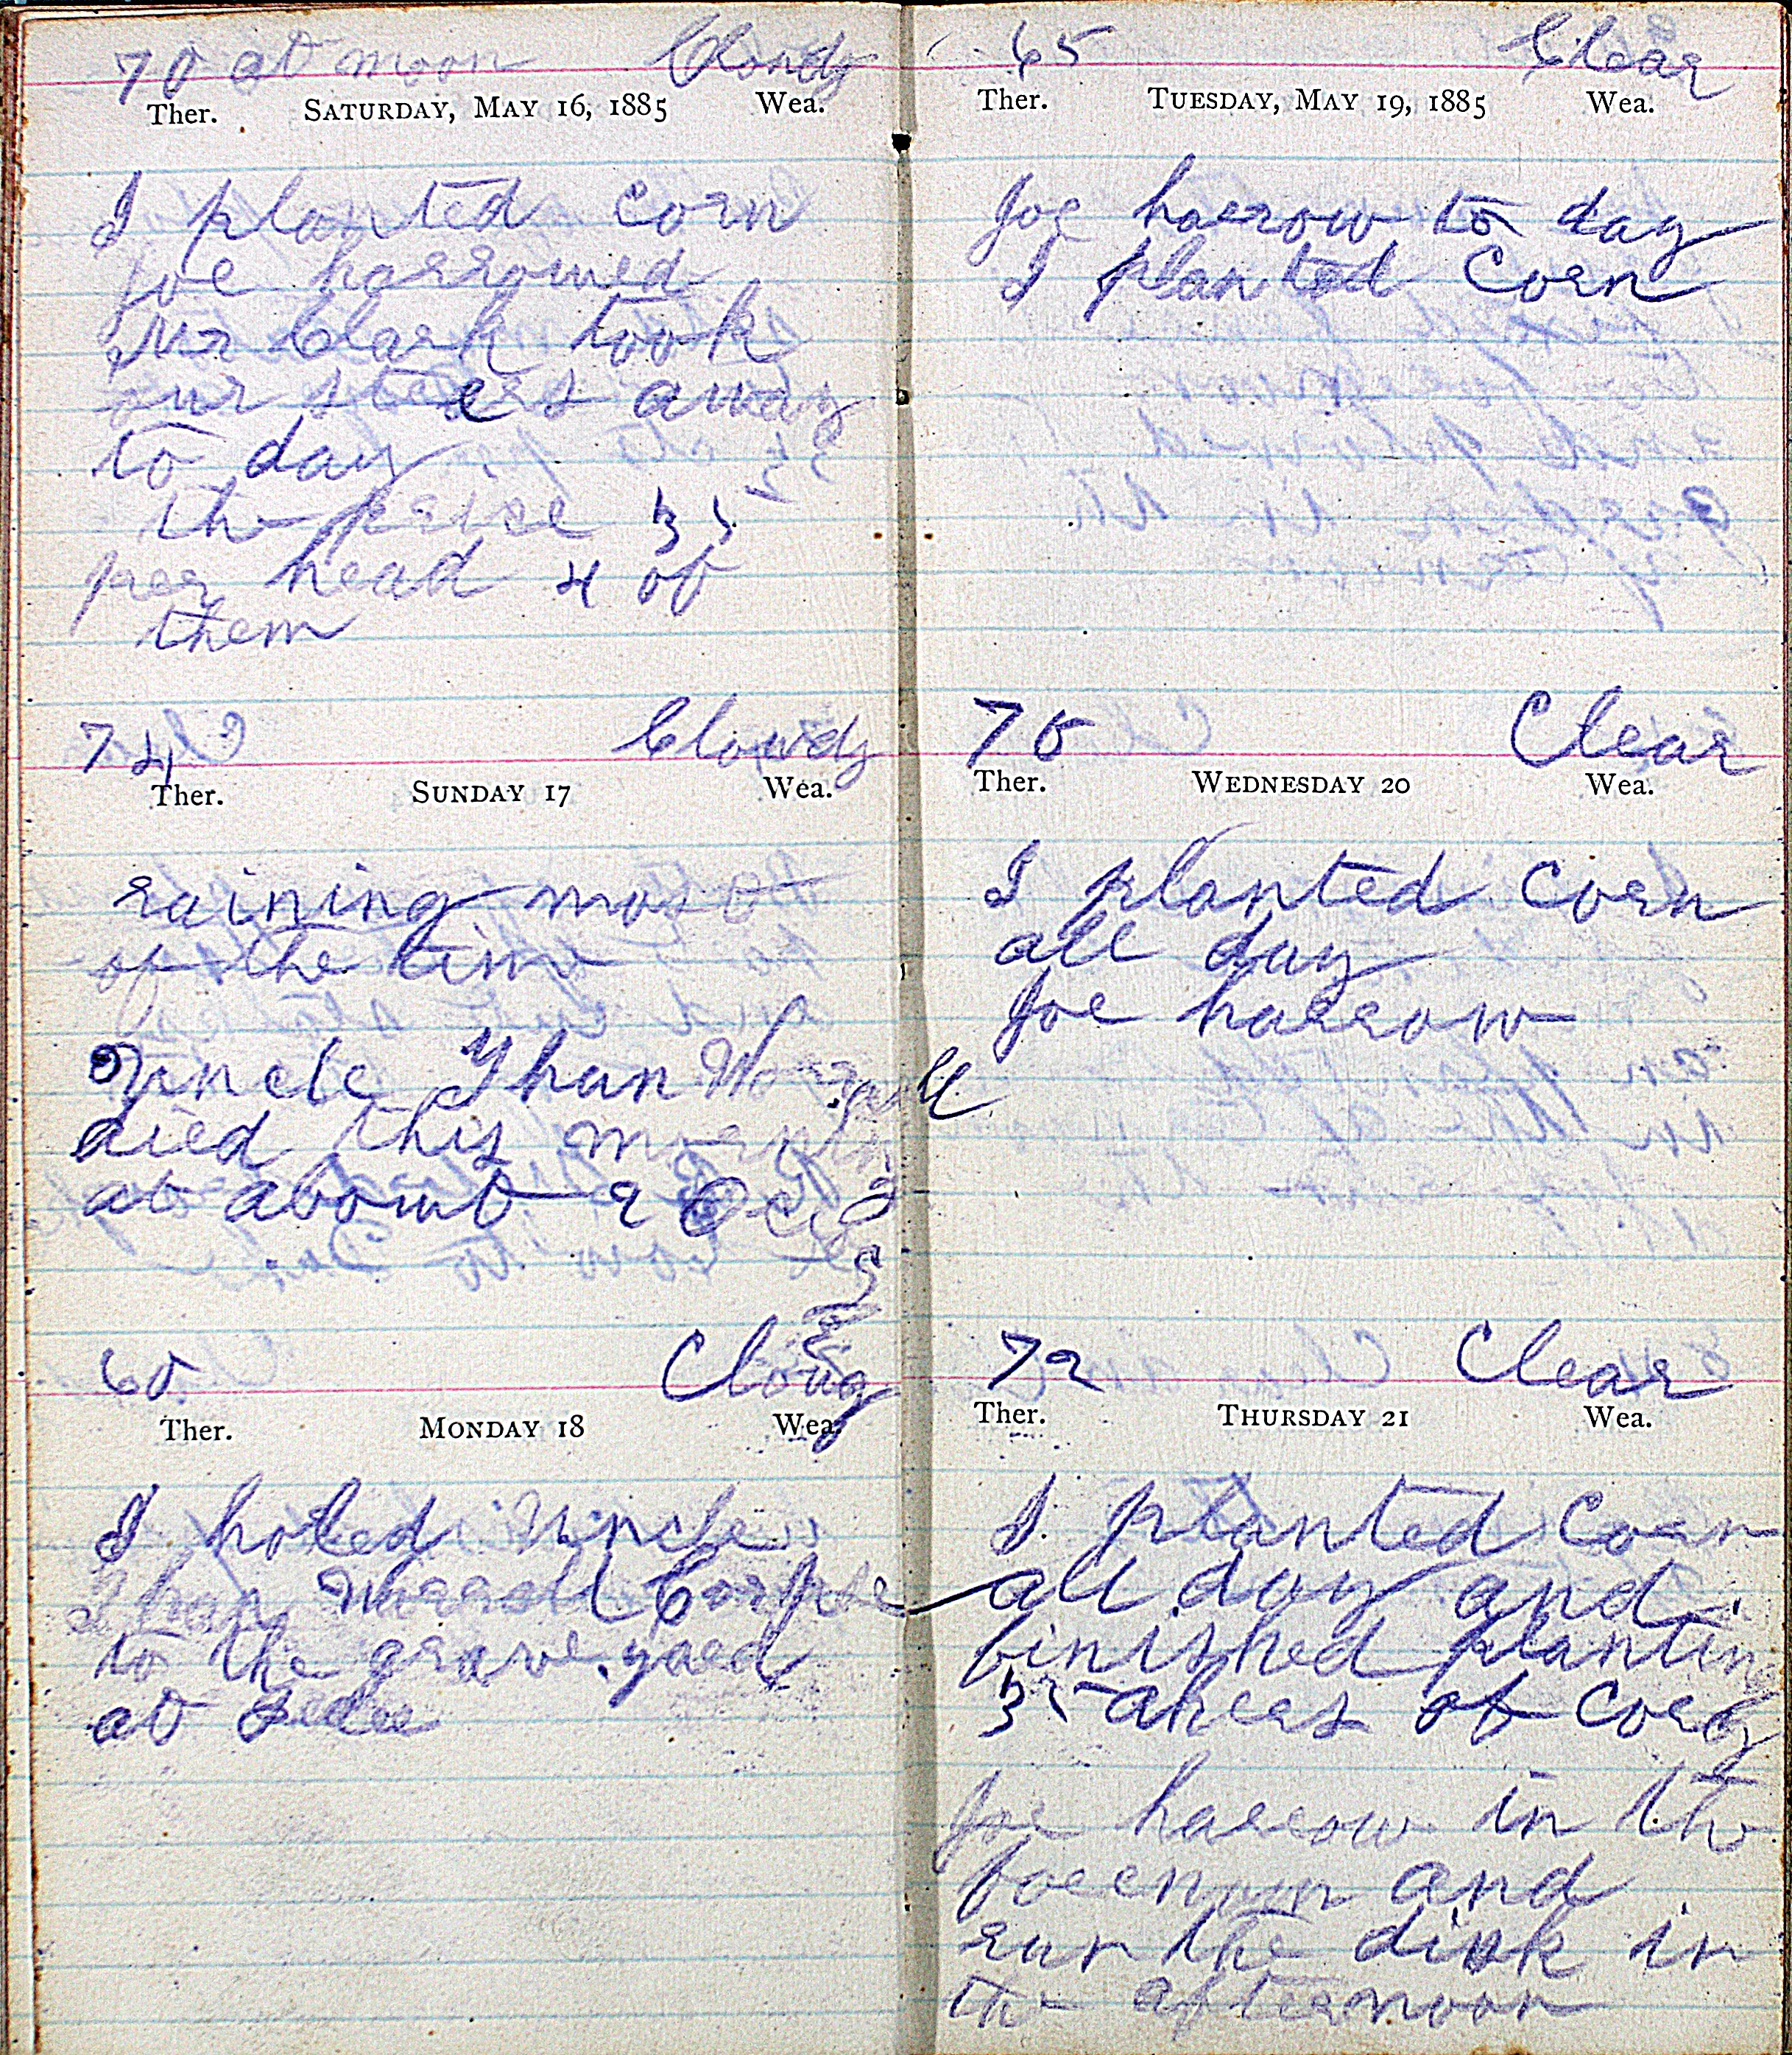 70 at noon Cloudy
Ther. SATURDAY, MAY 16, 1885 Wea.
I planted corn
Joe harrowed
Mr Clark took
our steers away
to day
the price 35
per head 4 of
them
74 Cloudy
Ther. SUNDAY 17 Wea.
raining most
of the time
Uncle Jhan Worrall
died this morning
at about 9 Oclo
60 Cloudy
Ther. MONDAY 18 Wea.
I holed Uncle
Jhan Worrall Corpse
to the grave yard
at
65 Clear
Ther. TUESDAY, MAY 19, 1885 Wea.
Joe harrow to day
I planted Corn
75 Clear
Ther. WEDNESDAY 20 Wea.
I planted Corn
all day
Joe harrow
72 Clear
Ther. THURSDAY 21 Wea.
I planted Corn
all day and
finished planting
35 akers of Corn
Joe harrow in the
foernoon and
run the disk in
the afternoon